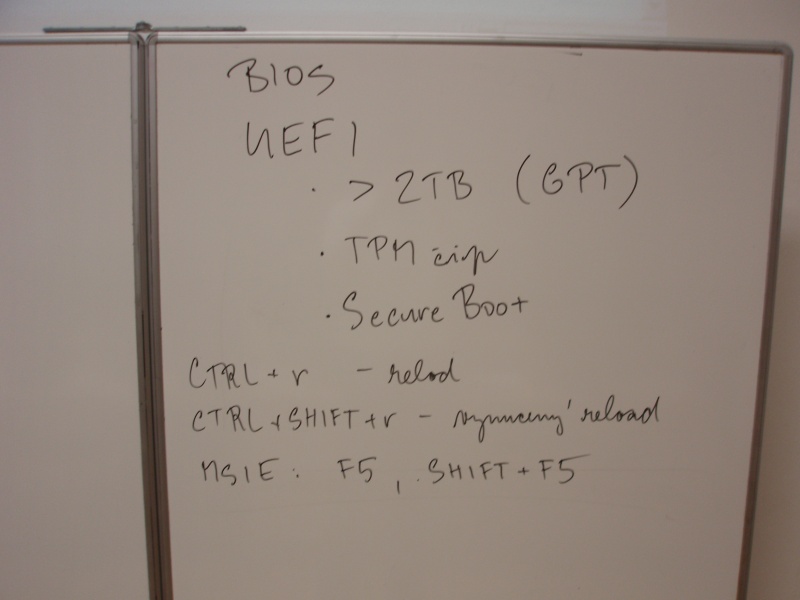 BIOS
UEFI
· > 2TB (GPT)
· TPM čip
· Secure Boot
CTRL + r - relod
CTRL + SHIFT + r - vynucený reload
MSIE: F5, SHIFT + F5